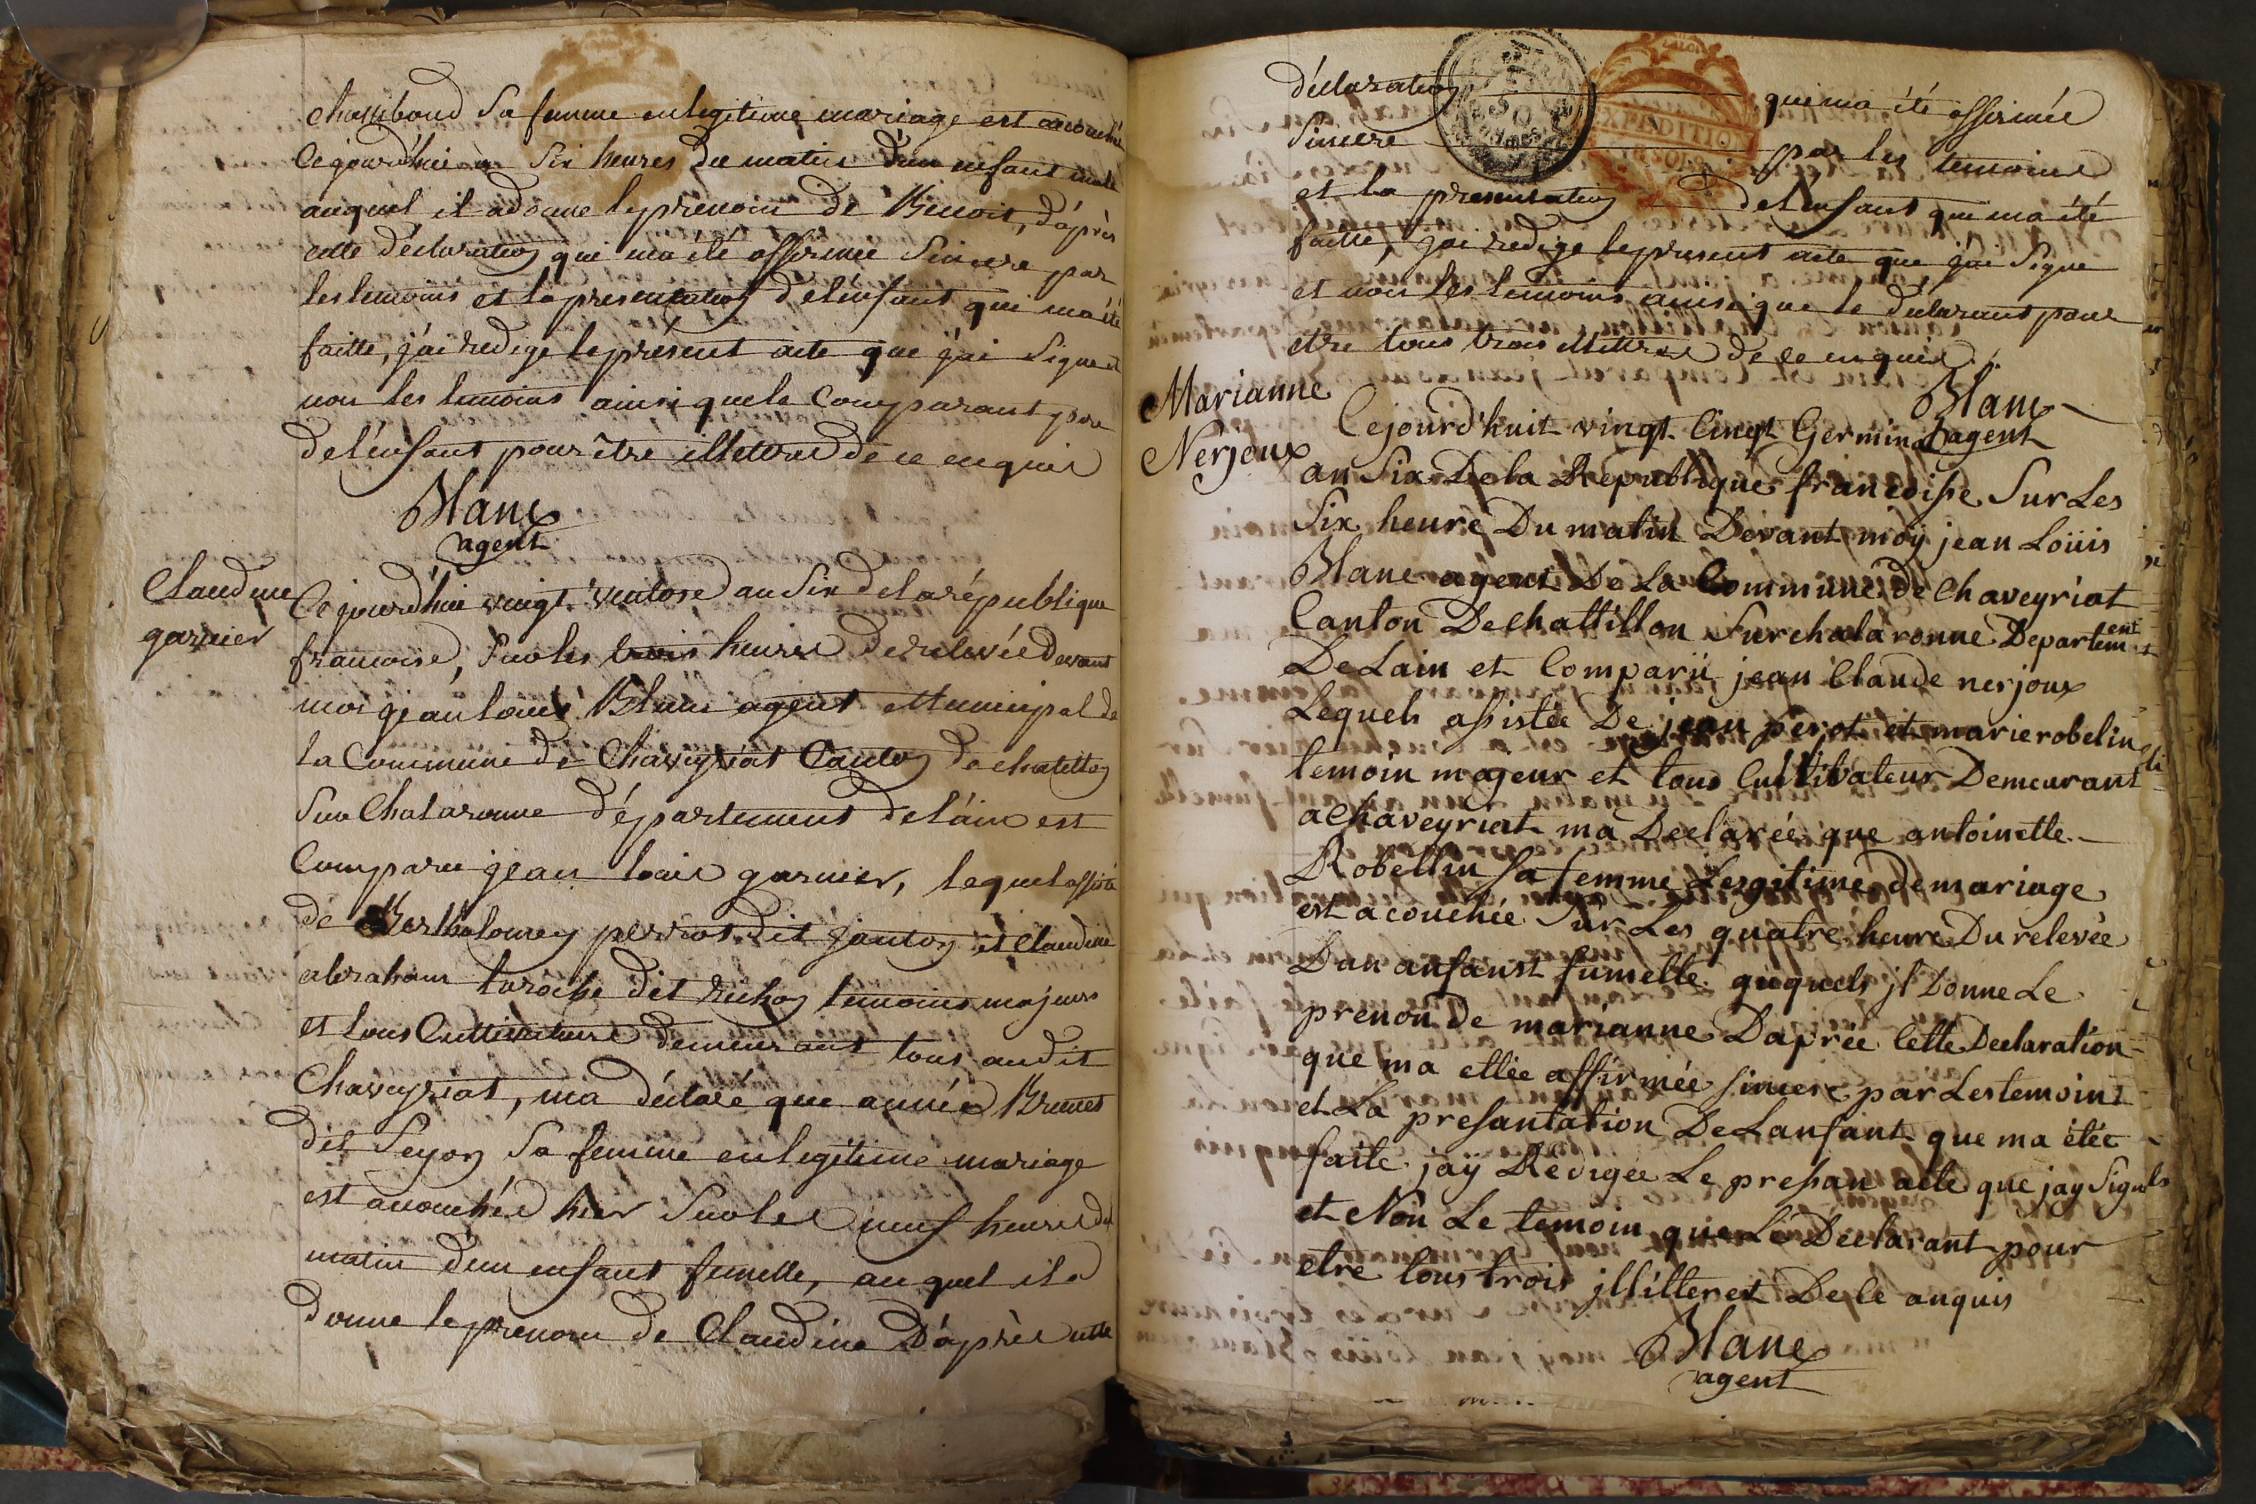 chambaud sa femme en legitime mariage est acouché
Cejourd'hui a Six heures du matin d'un enfant male
auquel il adonné leprenom de Benoit, d'aprés
cette déclaration qui ma été affirmée Sincere par
les temoins et la presentation del'enfant qui ma été
faitte, j'ai redigé leprésent acte que j'ai Signé et
non les temoins ainsi quele Comparant pere
del'enfant pour être illettré de ce enquis
Blanc
agent
Claudine
garnier
Cejourd'hui vingt ventose an Six delarépublique
francoise, Surles trois heures derelevée devant
moi jean louis Blanc agent Municipal de
la Commune de Chaveyriat Canton de chatillon
Sur Chalaronne département del'ain est
Comparu jean louis garnier, lequel assisté
de Bartholomey perrat dit janton et Claudine
abraham laroche dit richon temoins majeurs
et tous Cultivateurs demeurant tous audit
Chaveyriat, ma déclaré que année Brunet
dit Seyon Sa femme en legitime mariage
est acouchée hier Surles neuf heures du
matin d'un enfant femelle, auquel il a
donne leprenom de Claudine D'aprés cette
déclaration qui ma été affirmée
Sincere par les temoins
et la presentation del'enfant qui ma été
faitte, j'ai redigé leprésent acte que j'ai Signé
et non les temoins ainsi que le déclarant pour
etre tous trois illettrés de ce enquis
Blanc
agent
EXPEDITION
Marianne
Nerjoux
Cejourd'huit vingt Cinqt Germinal
an Six De la Republique francoise Sur Les
Six heure Du matin Devant moÿ jean Loüis
Blanc agent De La Commune de Chaveyriat
Canton De chattillon Sur chalaronne Departement
De Lain et Comparü jean Claude nerjoux
Lequels asistée De jean perot et marie robelin
temoin mageur et tous Cultibateur Demeurant
a Chaveyriat ma Declarée que antoinette
Robellin Sa femme Lesgitime de mariage
est acouchée Sur Les quatre heure Du relevée
Dun anfanst fumelle auquels jl Donne Le
prenon de marianne Daprée Cette Declaration
que ma ettée affirmée sincere par Les temoint
et La presantation De Lanfant que ma étée
faite jaÿ Redigée Le presan acte que jay Signés
et Non Le temoin que Le Declarant pour
etre tous trois jllitteret De Ce anquis
Blanc
agent